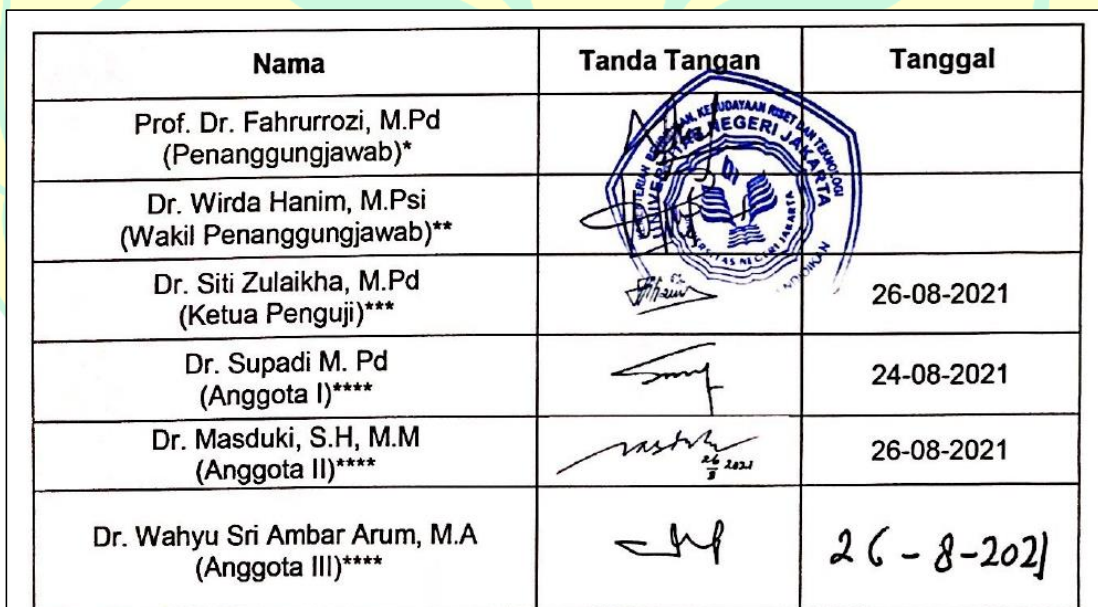 Nama Tanda Tangan Tanggal
Prof. Dr. Fahrurrozi, M.Pd
(Penanggungjawab)*
Dr. Wirda Hanim, M.Psi
(Wakil Penanggungjawab)**
KEBUDAYAAN RISET DAN TEKNOLOGI
UNIVERSITAS NEGERI JAKARTA
UNIVERSITAS NEGERI JAKARTA
Dr. Siti Zulaikha, M.Pd
(Ketua Penguji)***
26-08-2021
Dr. Supadi M. Pd
(Anggota I)****
24-08-2021
Dr. Masduki, S.H, M.M
(Anggota II)****
26 2021
8
26-08-2021
Dr. Wahyu Sri Ambar Arum, M.A
(Anggota III)****
26-8-2021